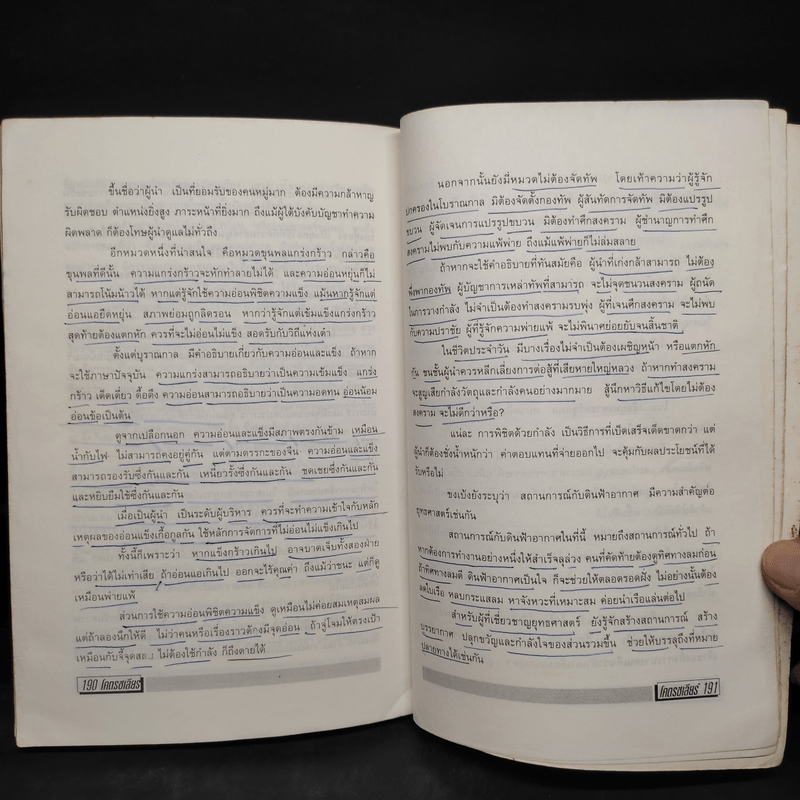 ขึ้นชื่อว่าผู้นำ เป็นที่ยอมรับของคนหมู่มาก ต้องมีความกล้าหาญ
รับผิดชอบ ตำแหน่งยิ่งสูง ภาระหน้าที่ยิ่งมาก ถึงแม้ผู้ใต้บังคับบัญชาทำความ
ผิดพลาด ก็ต้องโทษผู้นำดูแลไม่ทั่วถึง
อีกหมวดหนึ่งที่น่าสนใจ คือหมวดขุนพลแกร่งกร้าว กล่าวคือ
ขุนพลที่ดีนั้น ความแกร่งกร้าวจะหักทำลายไม่ได้ และความอ่อนหยุ่นก็ไม่
สามารถโน้มน้าวได้ หากแต่รู้จักใช้ความอ่อนพิชิตความแข็ง แม้นหากรู้จักแต่
อ่อนแอยืดหยุ่น สภาพย่อมถูกลิดรอน หากว่ารู้จักแต่เข้มแข็งแกร่งกร้าว
สุดท้ายต้องแตกหัก ควรที่จะไม่อ่อนไม่แข็ง สอดรับกับวิถีแห่งเต๋า
ตั้งแต่บุราณกาล มีคำอธิบายเกี่ยวกับความอ่อนและแข็ง ถ้าหาก
จะใช้ภาษาปัจจุบัน ความแกร่งสามารถอธิบายว่าเป็นความเข้มแข็ง แกร่ง
กร้าว เด็ดเดี่ยว ดื้อดึง ความอ่อนสามารถอธิบายว่าเป็นความอดทน อ่อนน้อม
อ่อนข้อเป็นต้น
ดูจากเปลือกนอก ความอ่อนและแข็งมีสภาพตรงกันข้าม เหมือน
น้ำกับไฟ ไม่สามารถคงอยู่คู่กัน แต่ตามตรรกะของจีน ความอ่อนและแข็ง
สามารถรองรับซึ่งกันและกัน เหนี่ยวรั้งซึ่งกันและกัน ชดเชยซึ่งกันและกัน
และหยิบยืมใช้ซึ่งกันและกัน
เมื่อเป็นผู้นำ เป็นระดับผู้บริหาร ควรที่จะทำความเข้าใจกับหลัก
เหตุผลของอ่อนแข็งเกื้อกูลกัน ใช้หลักการจัดการที่ไม่อ่อนไม่แข็งเกินไป
ทั้งนี้ก็เพราะว่า หากแข็งกร้าวเกินไป อาจบาดเจ็บทั้งสองฝ่าย
หรือว่าได้ไม่เท่าเสีย ถ้าอ่อนแอเกินไป ออกจะไร้คุณค่า ถึงแม้ว่าชนะ แต่ก็ดู
เหมือนพ่ายแพ้
ส่วนการใช้ความอ่อนพิชิตความแข็ง ดูเหมือนไม่ค่อยสมเหตุสมผล
แต่ถ้าลองนึกให้ดี ไม่ว่าคนหรือเรื่องราวต้องมีจุดอ่อน ถ้าจู่โจมให้ตรงเป้า
เหมือนกับจี้จุดสกัด ไม่ต้องใช้กำลัง ก็ถึงตายได้
190 โคตรซเลียร์
นอกจากนั้นยังมีหมวดไม่ต้องจัดทัพ โดยเท้าความว่าผู้รู้จัก
ปกครองในโบราณกาล มิต้องจัดตั้งกองทัพ ผู้สันทัดการจัดทัพ มิต้องแปรรูป
ขบวน ผู้จัดเจนการแปรรูปขบวน มิต้องทำศึกสงคราม ผู้ชำนาญการทำศึก
สงครามไม่พบกับความแพ้พ่าย ถึงแม้แพ้พ่ายก็ไม่ล่มสลาย
ถ้าหากจะใช้คำอธิบายที่ทันสมัยคือ ผู้นำที่เก่งกล้าสามารถ ไม่ต้อง
พึ่งพากองทัพ ผู้บัญชาการเหล่าทัพที่สามารถ จะไม่จุดชนวนสงคราม ผู้ถนัด
ในการวางกำลัง ไม่จำเป็นต้องทำสงครามรบพุ่ง ผู้ที่เจนศึกสงคราม จะไม่พบ
กับความปราชัย ผู้ที่รู้จักความพ่ายแพ้ จะไม่พินาศย่อยยับจนสิ้นชาติ
ในชีวิตประจำวัน มีบางเรื่องไม่จำเป็นต้องเผชิญหน้า หรือแตกหัก
กัน ชนชั้นผู้นำควรหลีกเลี่ยงการต่อสู้ที่เสียหายใหญ่หลวง ถ้าหากทำสงคราม
จะสูญเสียกำลังวัตถุและกำลังคนอย่างมากมาย สู้นึกหาวิธีแก้ไขโดยไม่ต้อง
สงคราม จะไม่ดีกว่าหรือ?
แน่ละ การพิชิตด้วยกำลัง เป็นวิธีการที่เบ็ดเสร็จเด็ดขาดกว่า แต่
ผู้นำก็ต้องชั่งน้ำหนักว่า ค่าตอบแทนที่จ่ายออกไป จะคุ้มกับผลประโยชน์ที่ได้
รับหรือไม่
ขงเบ้งยังระบุว่า สถานการณ์กับดินฟ้าอากาศ มีความสำคัญต่อ
ยุทธศาสตร์เช่นกัน
สถานการณ์กับดินฟ้าอากาศในที่นี้ หมายถึงสถานการณ์ทั่วไป ถ้า
หากต้องการทำงานอย่างหนึ่งให้สำเร็จลุล่วง คนที่คัดท้ายต้องดูทิศทางลมก่อน
ถ้าทิศทางลมดี ดินฟ้าอากาศเป็นใจ ก็จะช่วยให้ตลอดรอดฝั่ง ไม่อย่างนั้นต้อง
ลดใบเรือ หลบกระแสลม หาจังหวะที่เหมาะสม ค่อยนำเรือแล่นต่อไป
สำหรับผู้ที่เชี่ยวชาญยุทธศาสตร์ ยังรู้จักสร้างสถานการณ์ สร้าง
บรรยากาศ ปลุกขวัญและกำลังใจของส่วนรวมขึ้น ช่วยให้บรรลุถึงที่หมาย
ปลายทางได้เช่นกัน
โคตรซเลียร์ 191